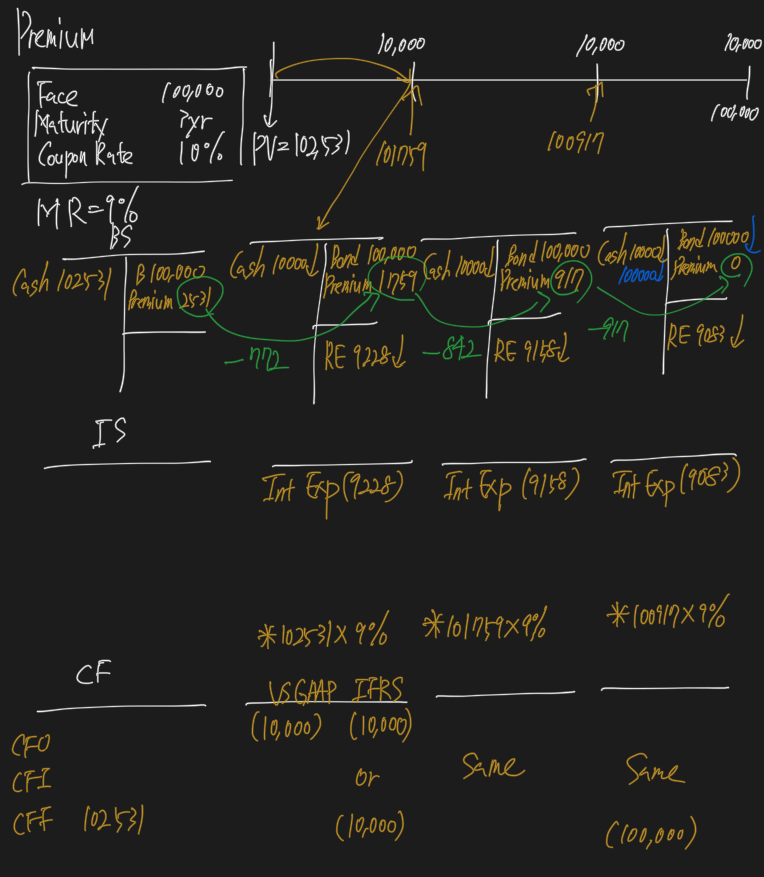 Premium
10,000 10,000 10,000
Face 100,000
Maturity 3yr
Coupon Rate 10%
PV=102,531
101759
100917
100,000
MR=9%
BS
Cash 102531
B 100,000
Premium 2531
Cash 10000↓
Bond 100,000
Premium 1759
RE 9228↓
Cash 10000↓
Bond 100,000
Premium 917
RE 9158↓
Cash 10000↓
100000↓
Bond 100000↓
Premium 0
RE 9083↓
-772 -842 -917
IS
Int Exp (9228) Int Exp (9158) Int Exp (9083)
*102531×9% *101759×9% *100917×9%
CF
US GAAP IFRS
(10,000) (10,000)
CFO
CFI or Same Same
CFF 102531 (10,000) (100,000)